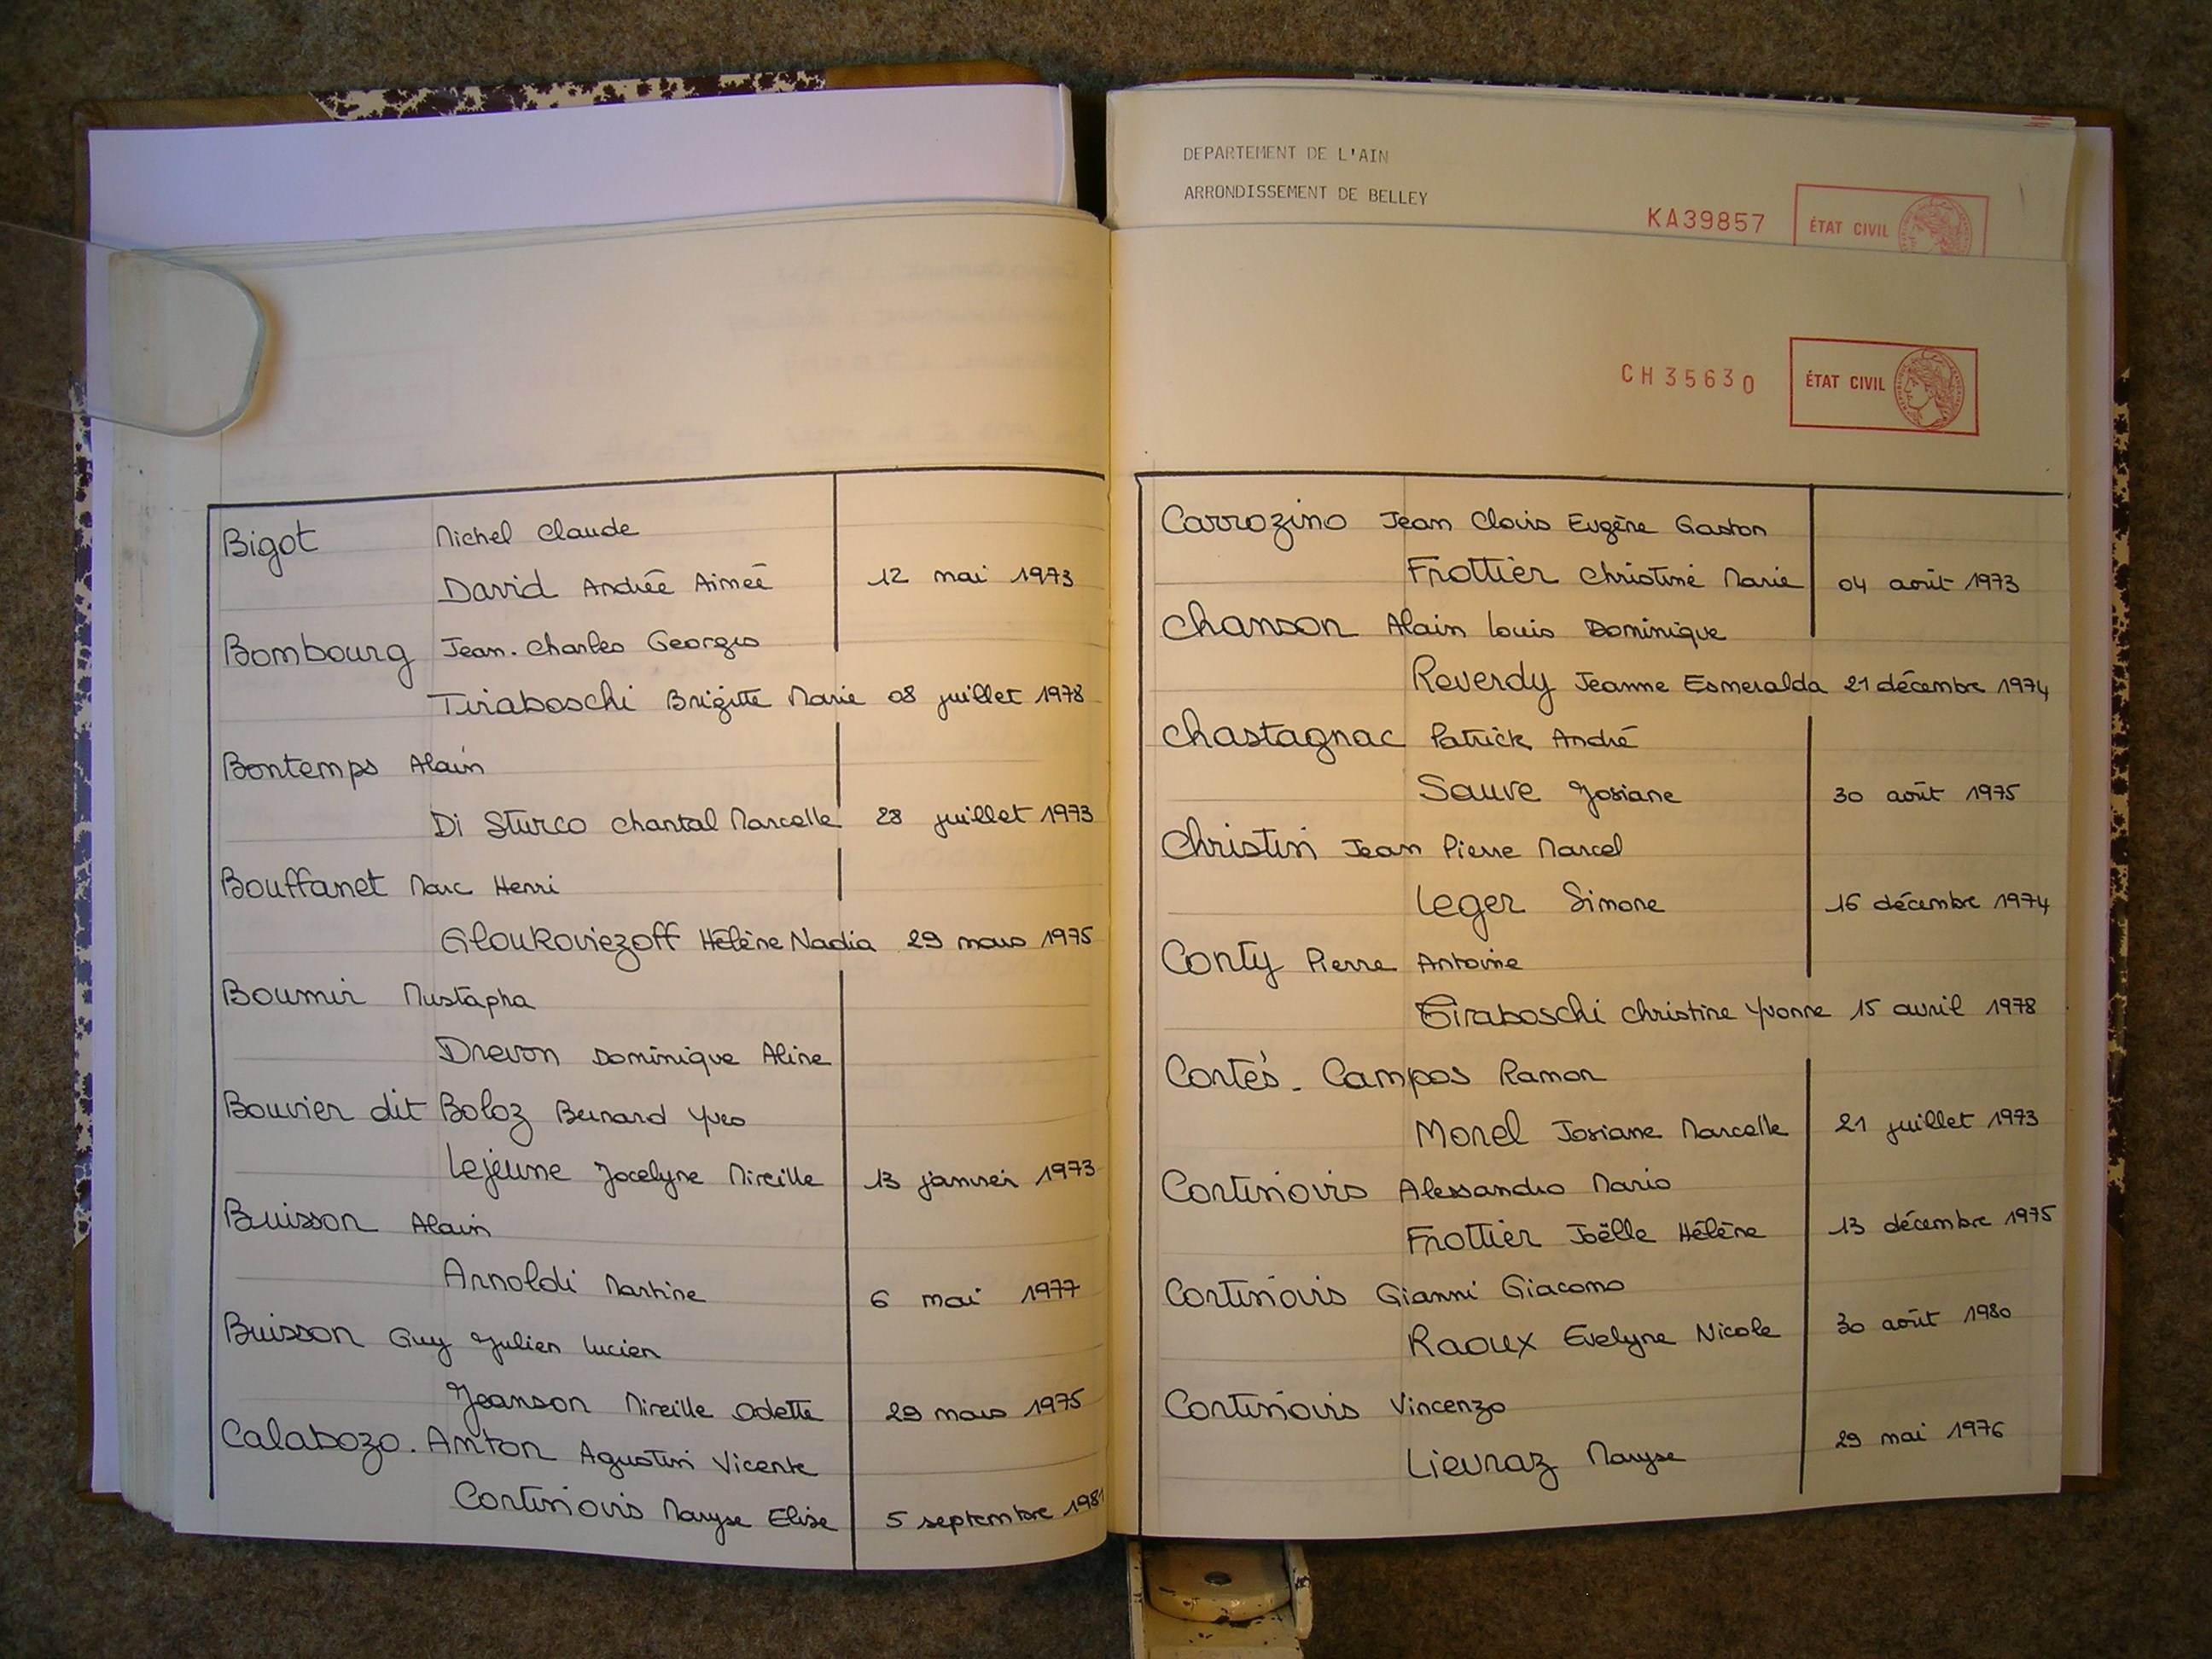 Bigot Michel Claude
David Andrée Aimée 12 mai 1973
Bombourg Jean-Charles Georges
Tiraboschi Brigitte Marie 08 juillet 1978
Bontemps Alain
Di Sturco Chantal Marcelle 28 juillet 1973
Bouffanet Marc Henri
Gloukoviezoff Hélène Nadia 29 mars 1975
Boumir Mustapha
Drevon Dominique Aline
Bouvier dit Boloz Bernard Yves
Lejeune Jocelyne Mireille 13 janvier 1973
Buisson Alain
Arnoldi Martine 6 mai 1977
Buisson Guy Julien Lucien
Jeanson Mireille Odette 29 mars 1975
Calabozo. Anton Agustin Vicente
Cortinovis Maryse Elise 5 septembre 1981
DEPARTEMENT DE L'AIN
ARRONDISSEMENT DE BELLEY
KA39857 ÉTAT CIVIL
CH35630 ÉTAT CIVIL
Carrozino Jean Clovis Eugène Gaston
Frottier Christine Marie 04 août 1973
Chanson Alain Louis Dominique
Reverdy Jeanne Esmeralda 21 décembre 1974
Chastagnac Patrick André
Sauve Josiane 30 août 1975
Christin Jean Pierre Marcel
Leger Simone 16 décembre 1974
Conty Pierre Antoine
Tiraboschi Christine Yvonne 15 avril 1978
Cortés - Campos Ramon
Morel Josiane Marcelle 21 juillet 1973
Cortinovis Alessandro Mario
Frottier Joëlle Hélène 13 décembre 1975
Cortinovis Gianni Giacomo
Raoux Evelyne Nicole 30 août 1980
Cortinovis Vincenzo
Lievraz Maryse 29 mai 1976